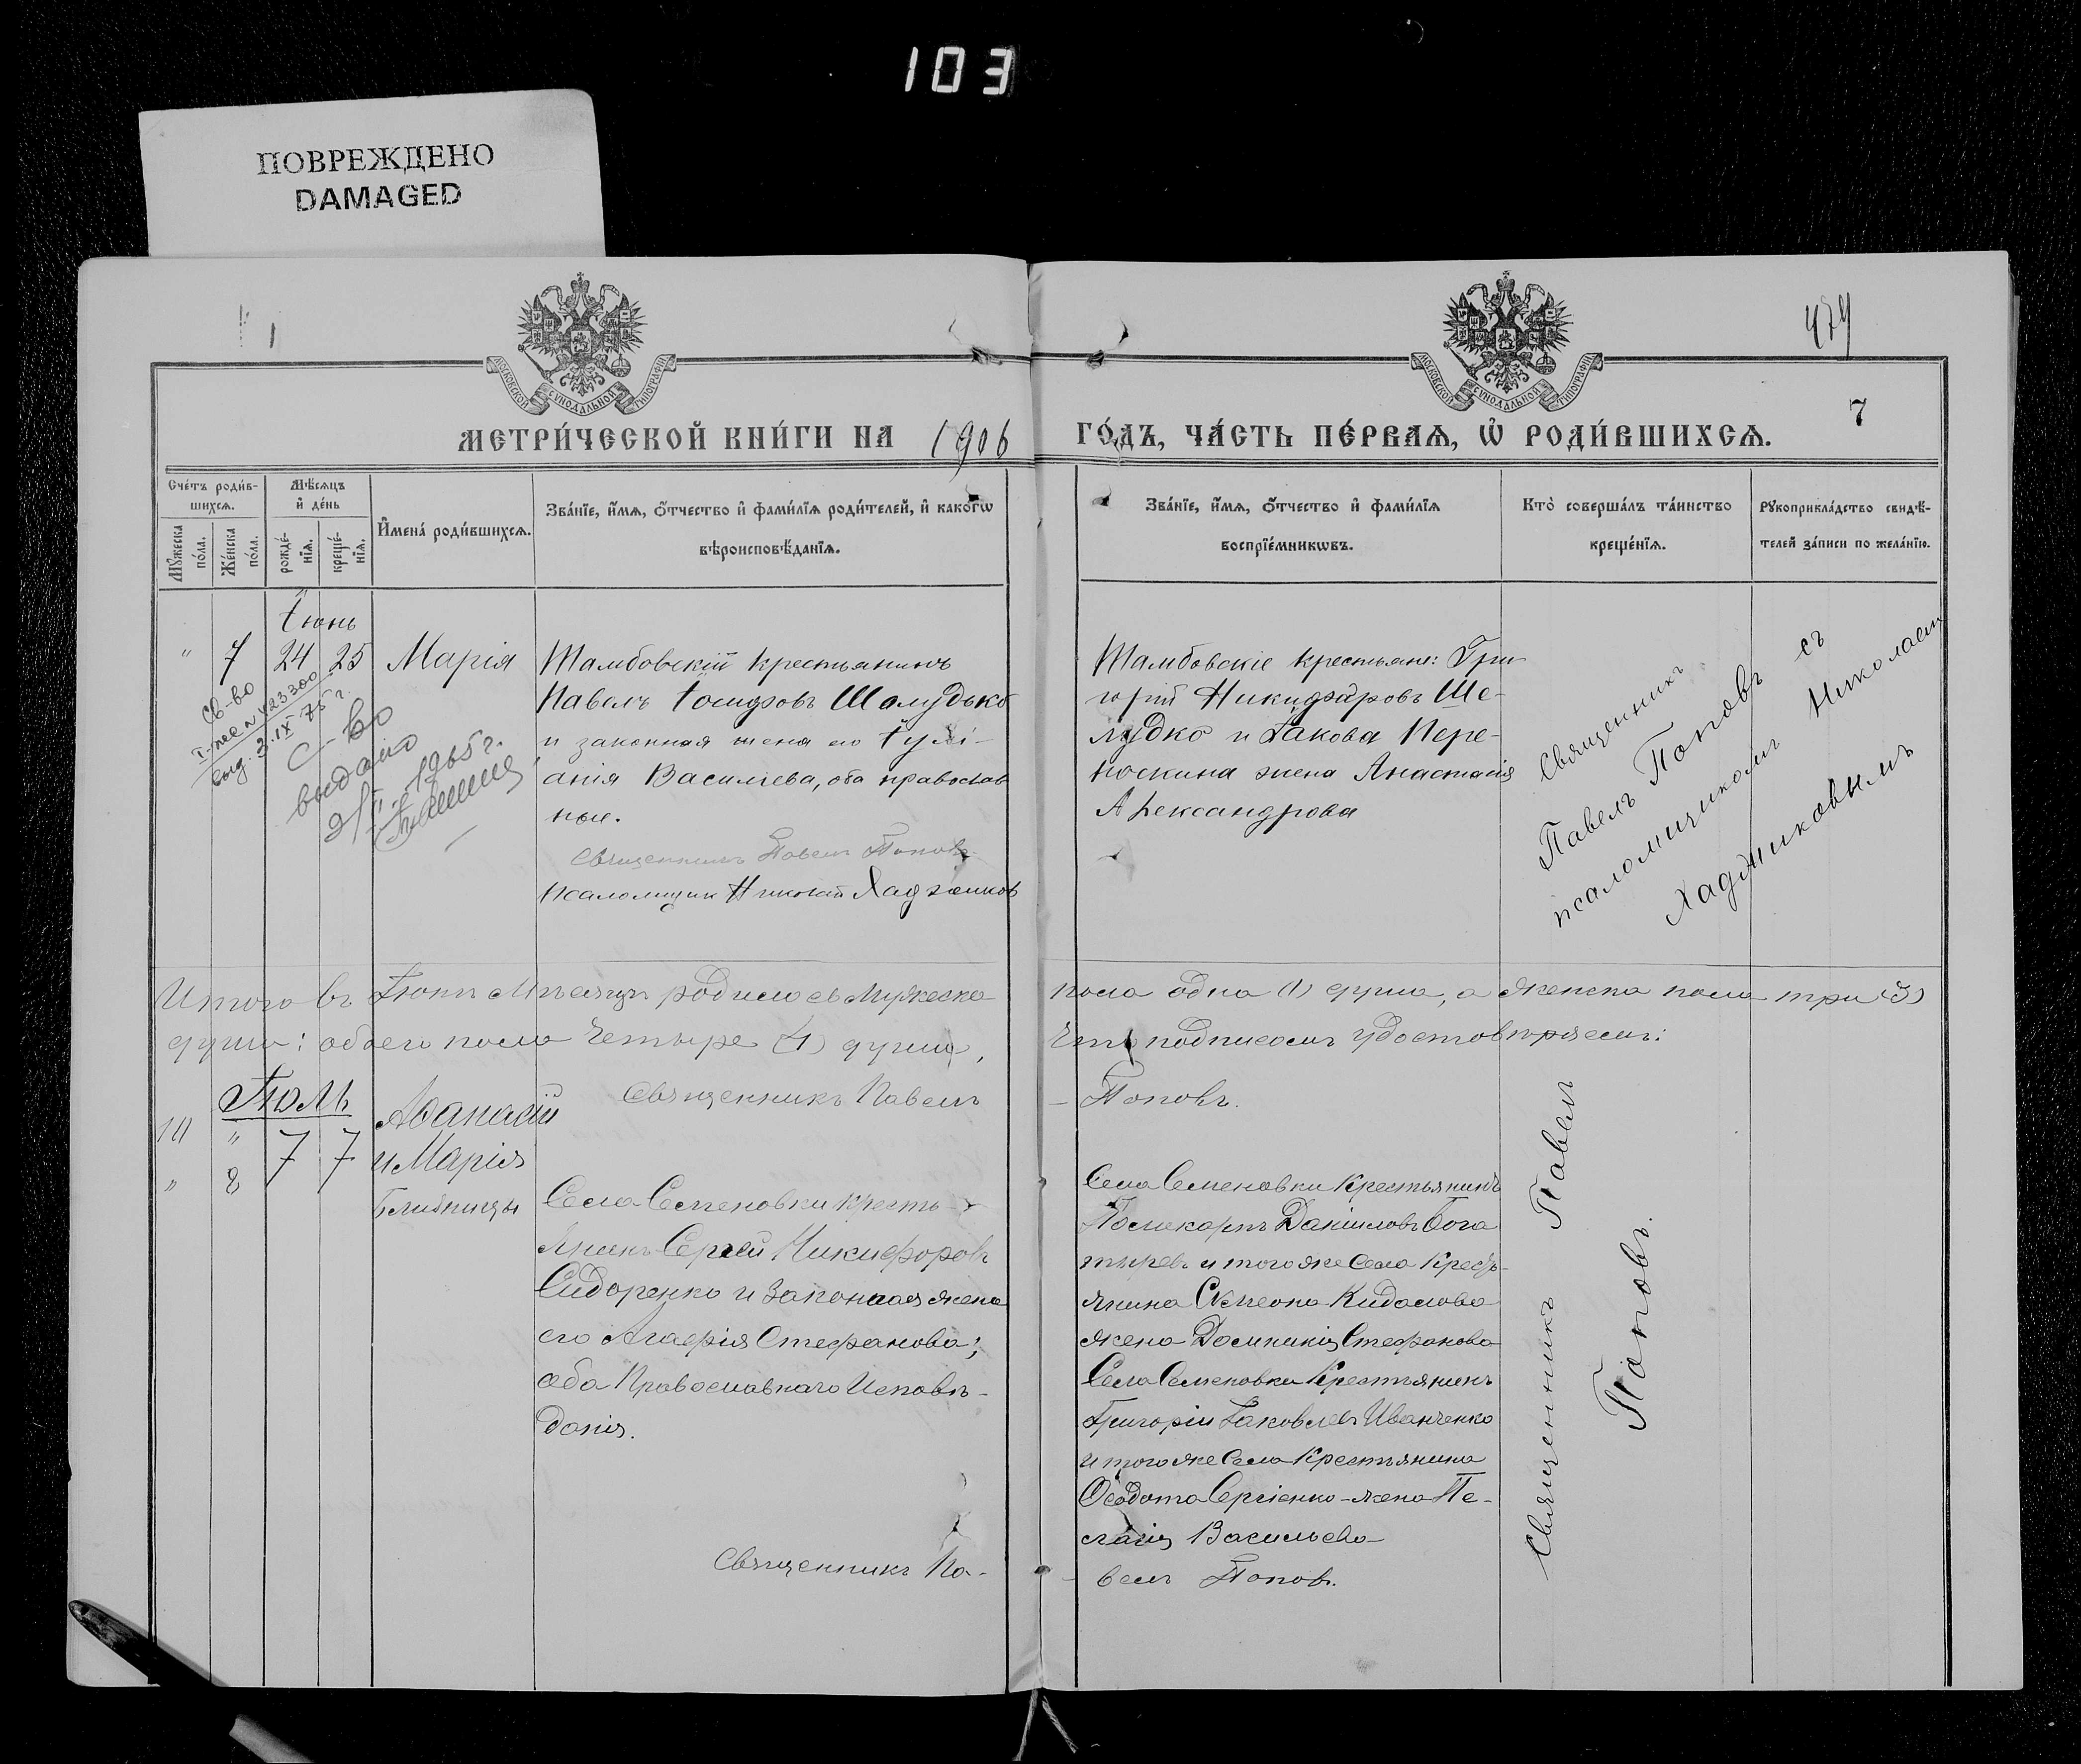 103
ПОВРЕЖДЕНО
DAMAGED
1
479
7
МОСКОВСКОЙ СѴНОДАЛЬНОЙ ТИПОГРАФІИ
МОСКОВСКОЙ СѴНОДАЛЬНОЙ ТИПОГРАФІИ
МЕТРИ́ЧЕСКОЙ КНИ́ГИ НА 1906 ГО́ДЪ, ЧА́СТЬ ПЕ́РВАѦ, Ѡ҆ РОДИ́ВШИХСѦ.
Сче́тъ роди́в-
шихсѧ.
Мꙋжеска по́ла.
Же́нска по́ла.
Мѣ́сѧцъ
и҆ де́нь
рожде́-
нїѧ.
креще́-
нїѧ.
И҆мена̀ роди́вшихсѧ.
Зва́нїе, и҆́мѧ, ѻ҆́тчество и҆ фами́лїѧ роди́телей, и҆ како́гѡ
вѣроисповѣ́данїѧ.
Зва́нїе, и҆́мѧ, ѻ҆́тчество и҆ фами́лїѧ
воспрїе́мникѡвъ.
Кто̀ соверша́лъ та́инство
креще́нїѧ.
Рꙋкоприкла́дство свидѣ́-
телей за́писи по жела́нїю.
Іюнь
" 7 24 25 Марія
Тамбовскій крестьянинъ
Павелъ Іосифовъ Шолудько
и законная жена его Іулі-
анія Василіева, оба православ
ные.
Священникъ Павелъ Поповъ
Псаломщик Николай Хаджиков
Св-во
I-ЖЕ N 423300
выд. 3.IX 75 г.
С-во
выдано
1965 г.
Тамбовскіе крестьяне: Гри-
горій Никифоровъ Ше-
лудко и Іакова Пере-
носкина жена Анастасія
Александрова
Священникъ
Павелъ Поповъ съ
псаломщикомъ Николаем
Хаджиковымъ
Итого въ Іюнѣ Мѣсяцѣ родилось Мужеска пола одна (1) душа, а женска пола три (3)
души: обоего пола четыре (4) души, Что подписомъ удостовѣряемъ:
Священникъ Павелъ Поповъ.
Іюль
14 " 7 7 Аѳанасій
" 8 и Марія
Близницы
Села Семеновки кресть-
янинъ Сергей Никифоровъ
Сидоренко и законная жена
его Агафія Стефанова;
оба Православнаго Исповѣ-
данія.
Священникъ Па-
велъ Поповъ.
Села Семеновки Крестьянинъ
Поликарпъ Даніиловъ Бога
тыревъ и того же Села Кресть-
янина Симеона Кидалова
жена Домникія Стефанова
Села Семеновки Крестьянинъ
Григорій Іаковлевъ Иванченко
и того же Села Крестьянина
Ѳеодота Сергіенко-жена Пе-
лагія Васильева
Священникъ Павелъ
Поповъ.